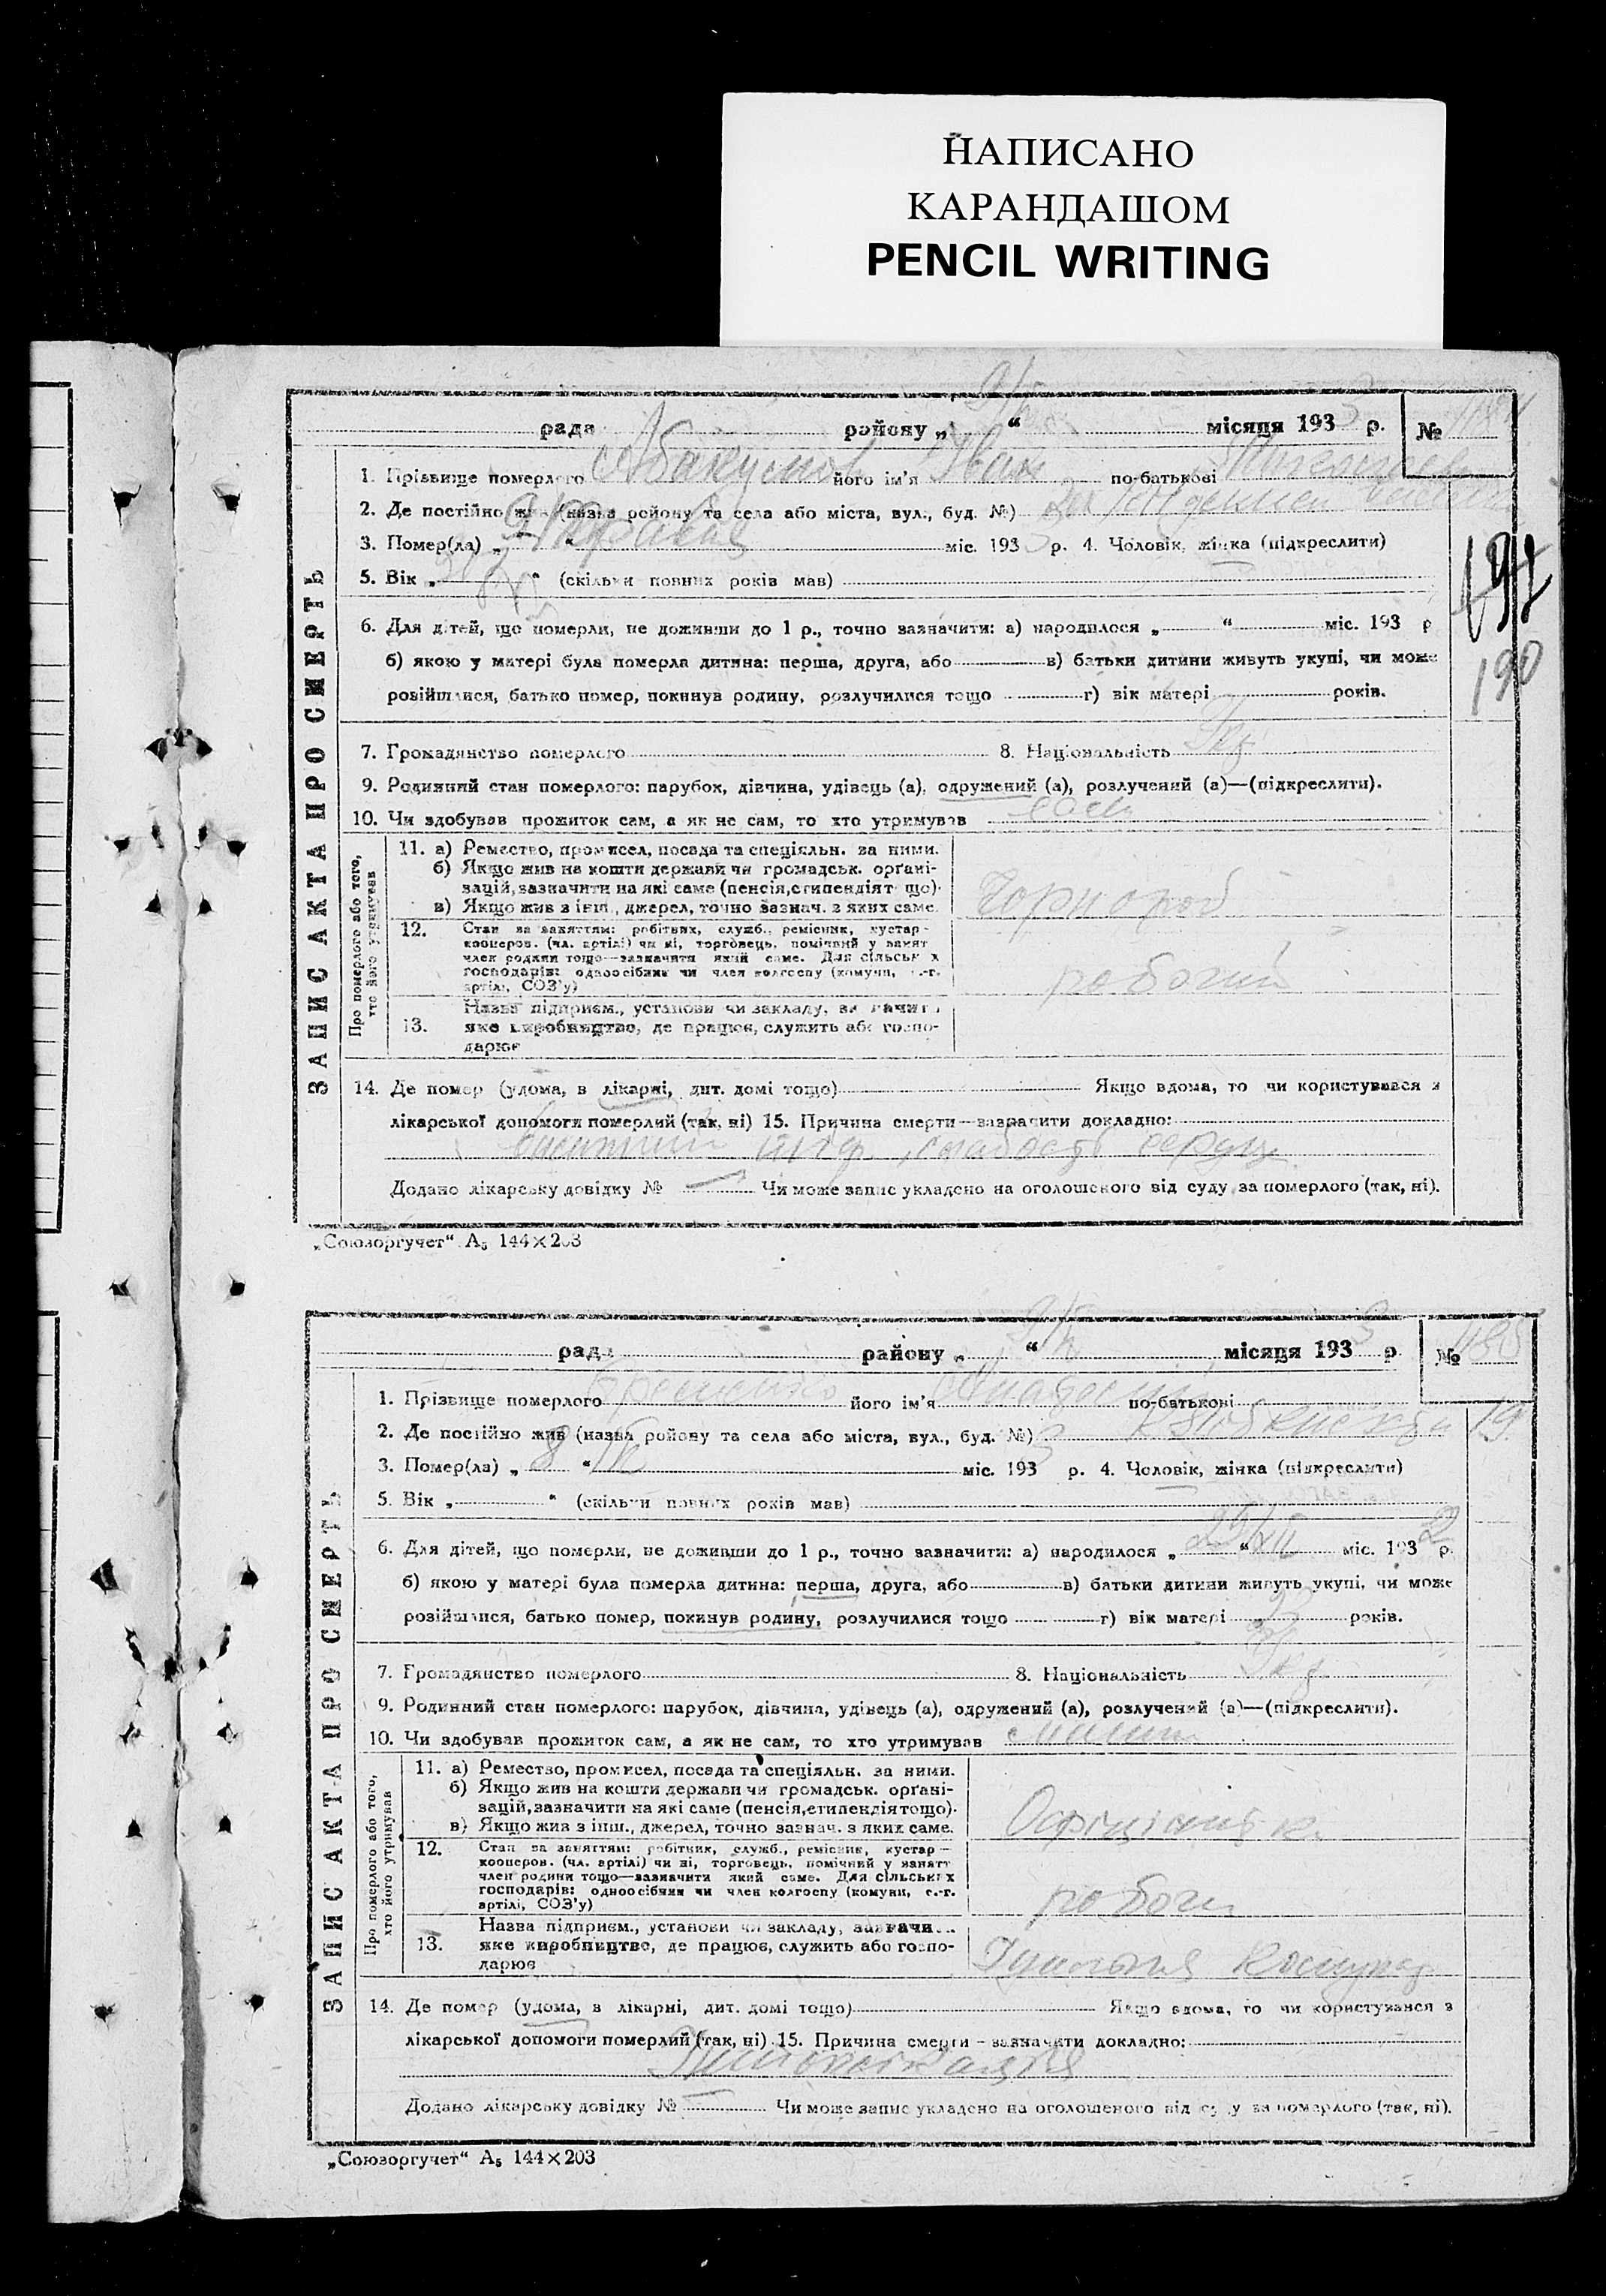 НАПИСАНО
КАРАНДАШОМ
PENCIL WRITING
рада району „ “ місяця 1933 р. № 1184
ЗАПИС АКТА ПРО СМЕРТЬ
1. Прізвище померлого Абакумов його ім'я Іван по-батькові
2. Де постійно жив (назва району та села або міста, вул., буд. №)
3. Помер(ла) „ 9 “ міс. 1933 р. 4. Чоловік, жінка (підкреслити)
5. Вік „ “ (скільки повних років мав)
6. Для дітей, що померли, не доживши до 1 р., точно зазначити: а) народилося „ “ міс. 193 р
б) якою у матері була померла дитина: перша, друга, або в) батьки дитини живуть укупі, чи може
розійшлися, батько помер, покинув родину, розлучилися тощо г) вік матері років.
190
7. Громадянство померлого 8. Національність Укр
9. Родинний стан померлого: парубок, дівчина, удівець (а), одружений (а), розлучений (а)—(підкреслити).
10. Чи здобував прожиток сам, а як не сам, то хто утримував сам
Про померлого або того, хто його утримував
11. а) Ремество, промисел, посада та спеціяльн. за ними.
б) Якщо жив на кошти держави чи громадськ. орґані-
зацій, зазначити на які саме (пенсія, стипендія т що).
в) Якщо жив з інш., джерел, точно зазнач. з яких саме.
Чорнороб
12. Стан за заняттям: робітник, служб., ремісник, кустар -
кооперов. (чл. артілі) чи ні, торговець, помічний у занят
член родини тощо—зазначити який саме. Для сільськ х
господарів: одноосібник чи член колгоспу (комуни, с.-г.
артілі, СОЗ'у)
робочий
13. Назва підприєм., установи чи закладу, зазначити
яке виробництво, де працює, служить або госпо-
дарює
14. Де помер (удома, в лікарні, дит. домі тощо) Якщо вдома, то чи користувався з
лікарської допомоги померлий (так, ні) 15. Причина смерти—зазначити докладно:
слабость серця
Додано лікарську довідку № — Чи може запис укладено на оголошеного від суду за померлого (так, ні).
„Союзоргучет“ А₅ 144×203
рада району „ “ місяця 1933 р № 1185
ЗАПИС АКТА ПРО СМЕРТЬ
1. Прізвище померлого його ім'я по-батькові
2. Де постійно жив (назва району та села або міста, вул., буд. №) 19
3. Помер(ла) „ 8 “ міс. 1933 р. 4. Чоловік, жінка (підкреслити)
5. Вік „ “ (скільки повних років мав)
6. Для дітей, що померли, не доживши до 1 р., точно зазначити: а) народилося „ “ XII міс. 1932 р.
б) якою у матері була померла дитина: перша, друга, або в) батьки дитини живуть укупі, чи може
розійшлися, батько помер, покинув родину, розлучилися тощо г) вік матері років.
7. Громадянство померлого 8. Національність Укр
9. Родинний стан померлого: парубок, дівчина, удівець (а), одружений (а), розлучений (а)—(підкреслити).
10. Чи здобував прожиток сам, а як не сам, то хто утримував
Про померлого або того, хто його утримував
11. а) Ремество, промисел, посада та спеціяльн. за ними.
б) Якщо жив на кошти держави чи громадськ. орґані-
зацій, зазначити на які саме (пенсія, стипендія тощо).
в) Якщо жив з інш., джерел, точно зазнач. з яких саме.
12. Стан за заняттям: робітник, служб., ремісник, кустар —
кооперов. (чл. артілі) чи ні, торговець, помічний у занятт
член родини тощо—зазначити який саме. Для сільських
господарів: одноосібник чи член колгоспу (комуни, с.-г.
артілі, СОЗ'у)
робоч
13. Назва підприєм., установи чи закладу, зазначи
яке виробництво, де працює, служить або госпо-
дарює
14. Де помер (удома, в лікарні, дит. домі тощо) Якщо вдома, то чи користувався з
лікарської допомоги померлий (так, ні) 15. Причина смерти—зазначити докладно:
Додано лікарську довідку № Чи може запис укладено на оголошеного від суду за померлого (так, ні).
„Союзоргучет“ А₅ 144×203